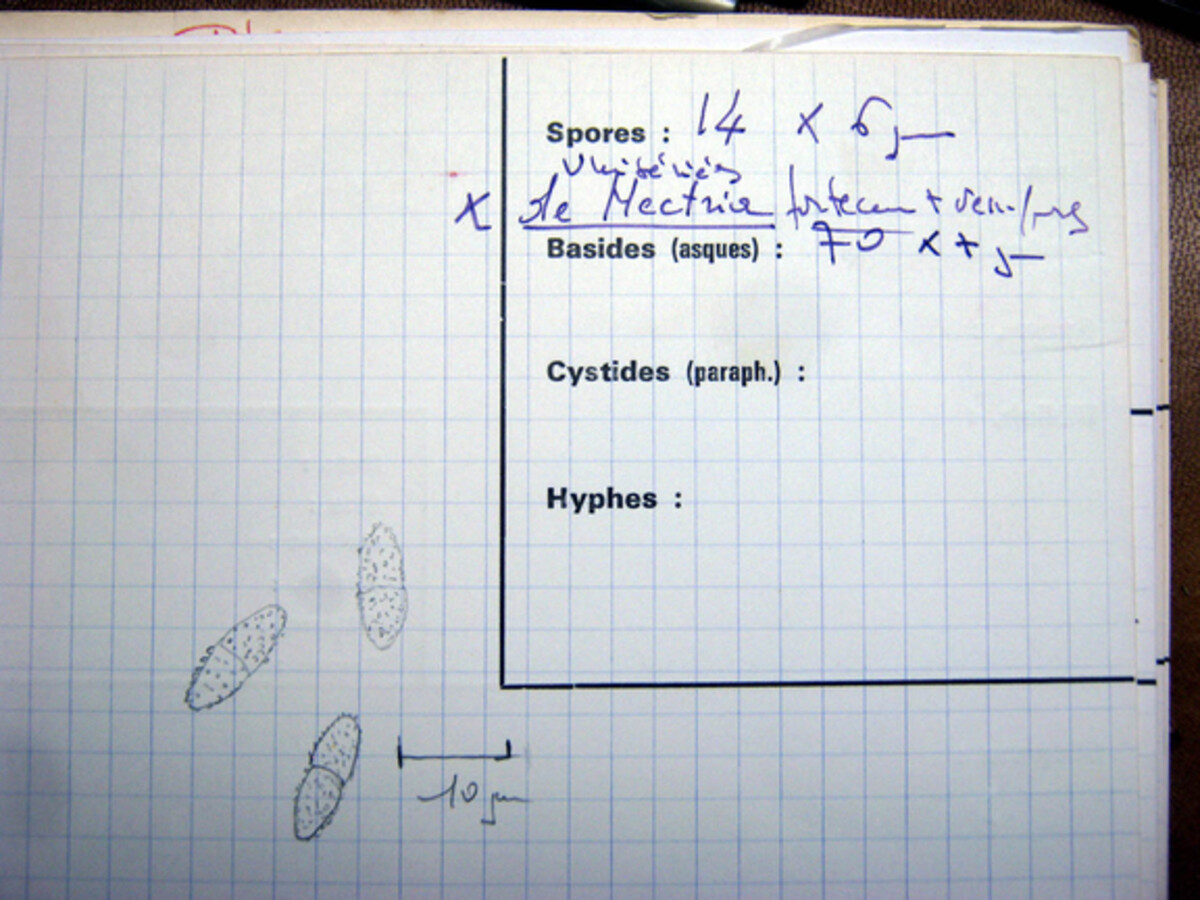 Spores : 14 x 6 µm
unisériés
x de Nectria
Basides (asques) : 70 x 7 µm
Cystides (paraph.) :
Hyphes :
10 µm